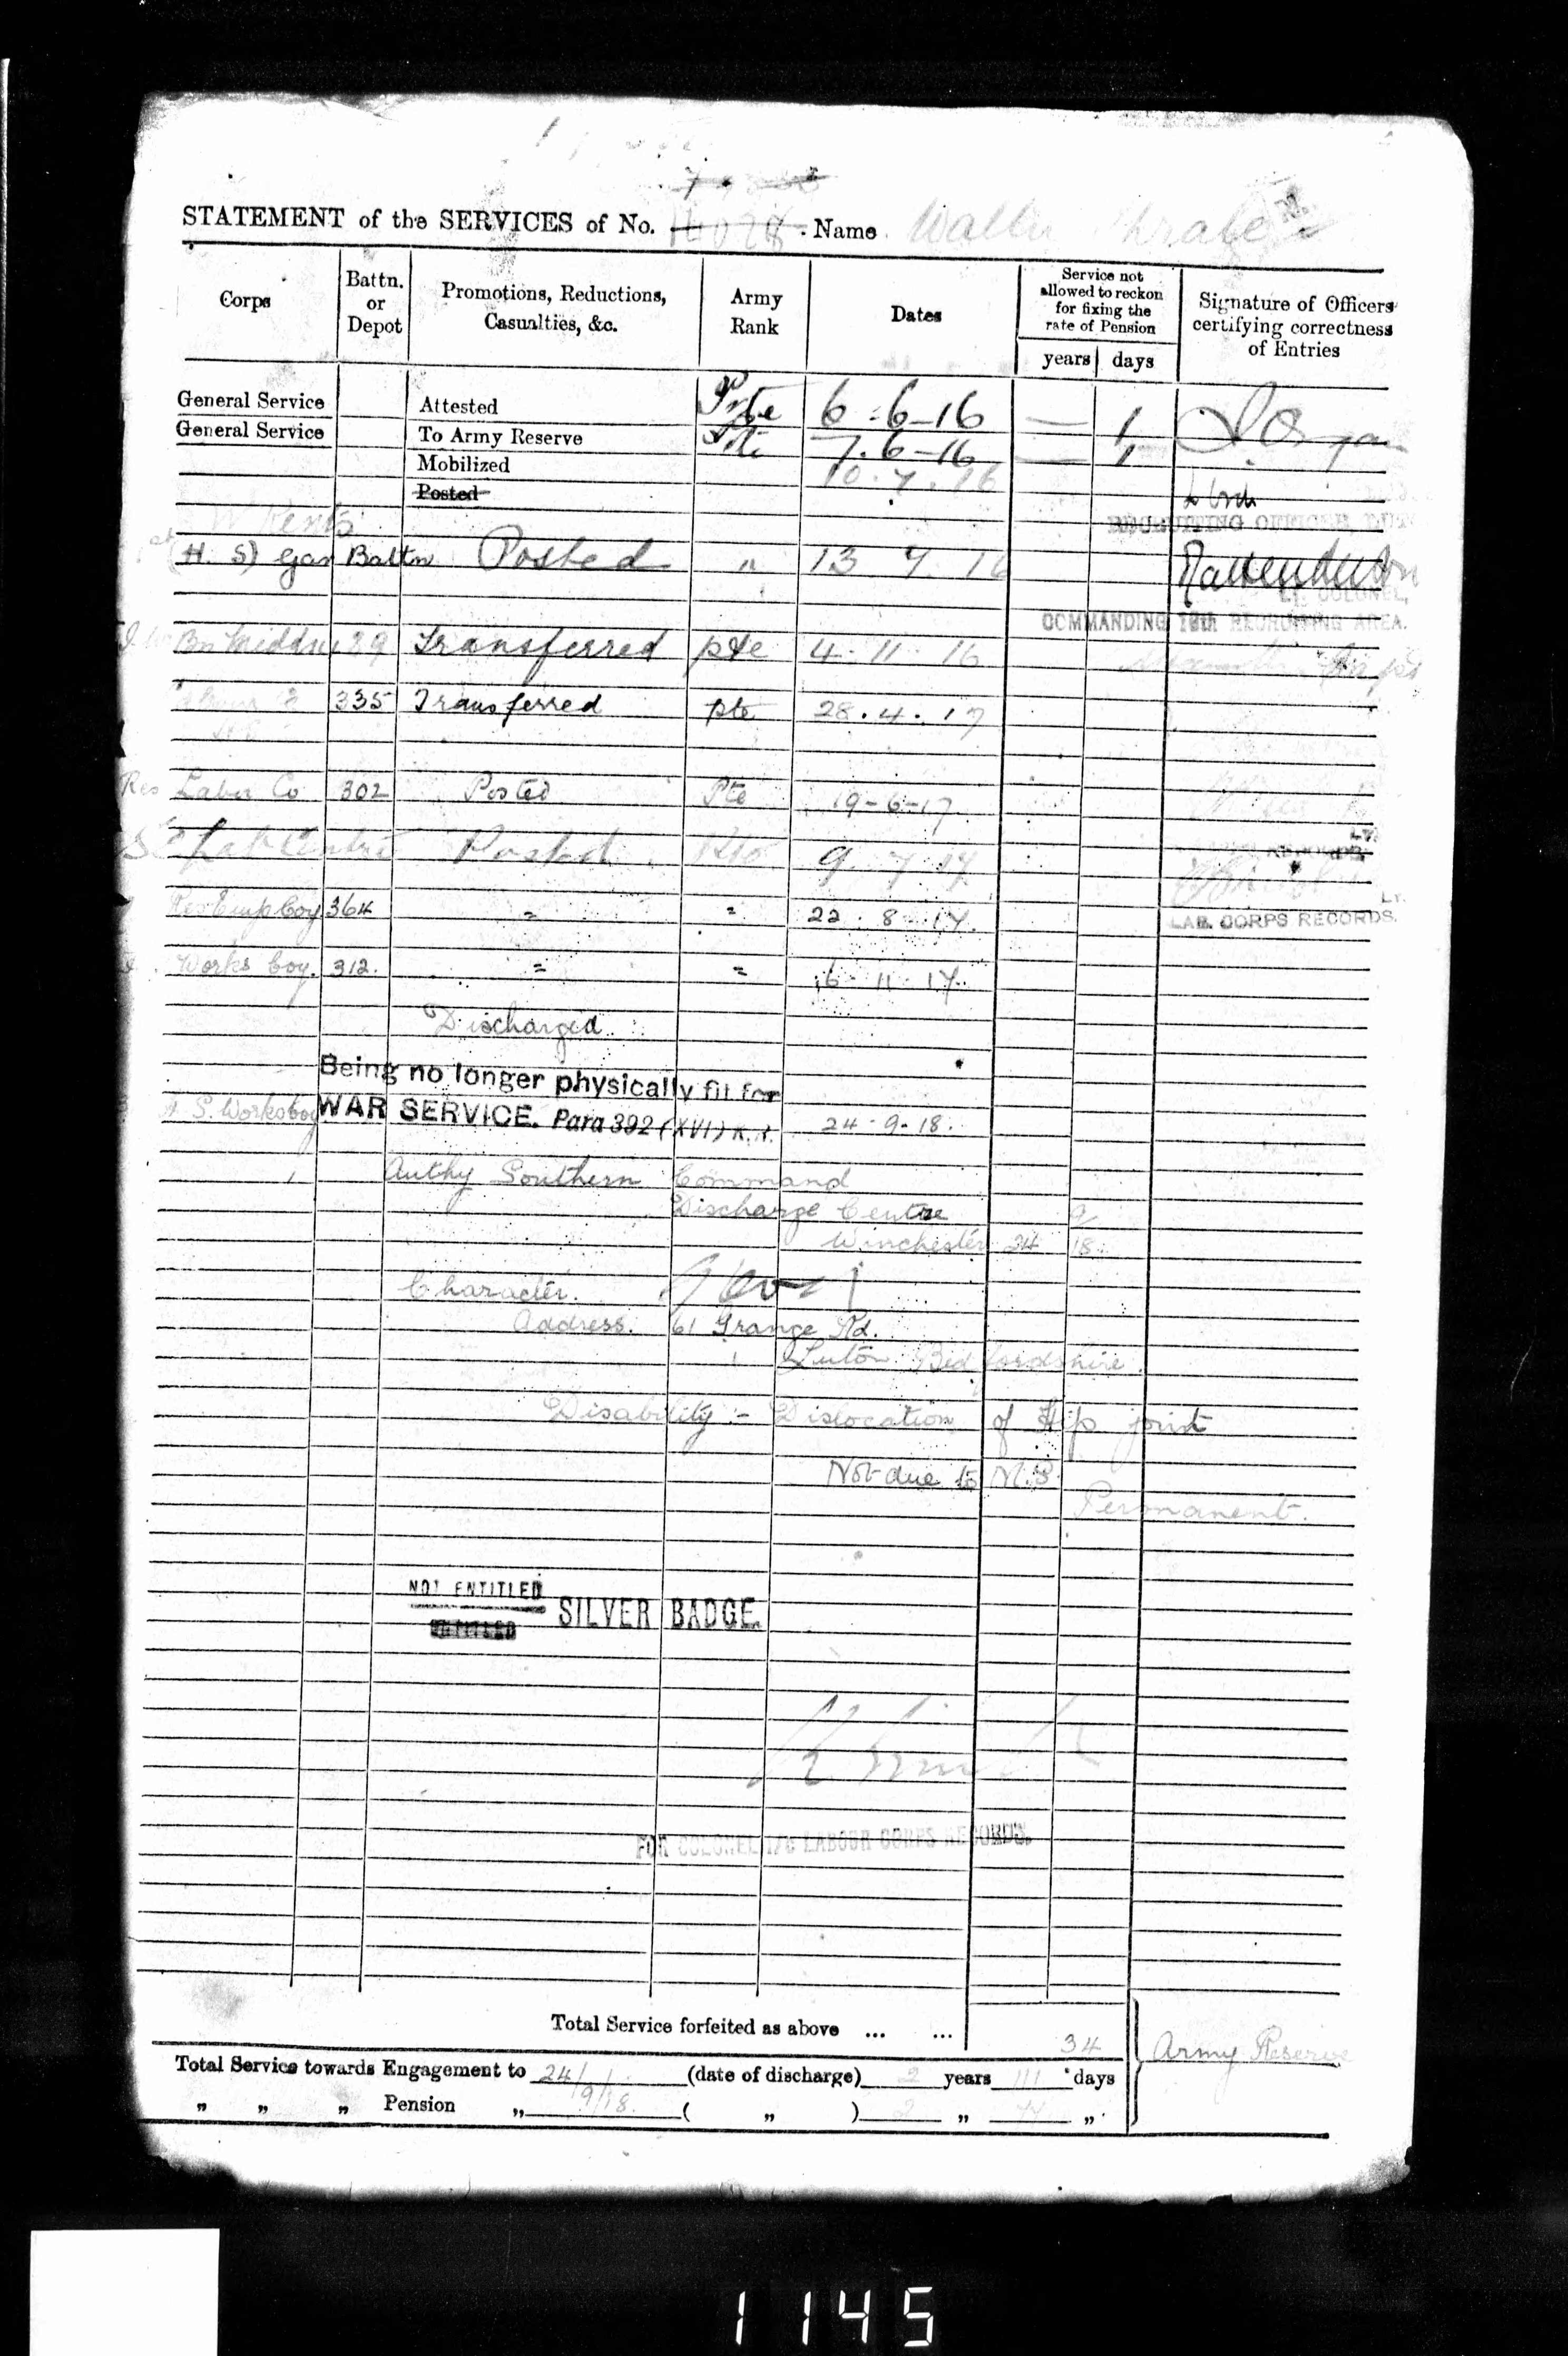 STATEMENT of the SERVICES of No. 14028 Name Walter
Corps
Battn. or Depot
Promotions, Reductions, Casualties, &c.
Army Rank
Dates
Service not allowed to reckon for fixing the rate of Pension
years days
Signature of Officers certifying correctness of Entries
General Service Attested Pte 6-6-16 1
General Service To Army Reserve Pte 7.6-16 1
Mobilized 10.7.16
Posted
W Kents
RECRUITING OFFICER
(H. S) Gar Battn Posted " 13 7 16
LT. COLONEL,
COMMANDING 10th RECRUITING AREA.
Bn Middsx Transferred pte 4.11.16
335 Transferred pte 28.4.17
Res Labur Co 302 Posted Pte 19-6-17
LT.
Lab Centre Posted 9 7 17
Res Emp Coy 364 " " 22.8.17.
LT.
LAB. CORPS RECORDS.
Works Coy. 312. " " 6 11 17.
Discharged
Being no longer physically fit for
H. S. Works Coy WAR SERVICE. Para 392 (XVI) K.R. 24-9-18.
Authy Southern Command
Discharge Centre
Winchester 24 9 18.
Character.
Address. 61 Grange Rd.
Luton Bedfordshire.
Disability :- Dislocation of Hip joint
Not due to M.S.
Permanent.
NOT ENTITLED
ENTITLED SILVER BADGE.
FOR COLONEL I/C LABOUR CORPS RECORDS.
Total Service forfeited as above ... ... 34 Army Reserve
Total Service towards Engagement to 24/9/18. (date of discharge) 2 years 111 days
" " " Pension " ( " ) 2 " 77 ".
1145